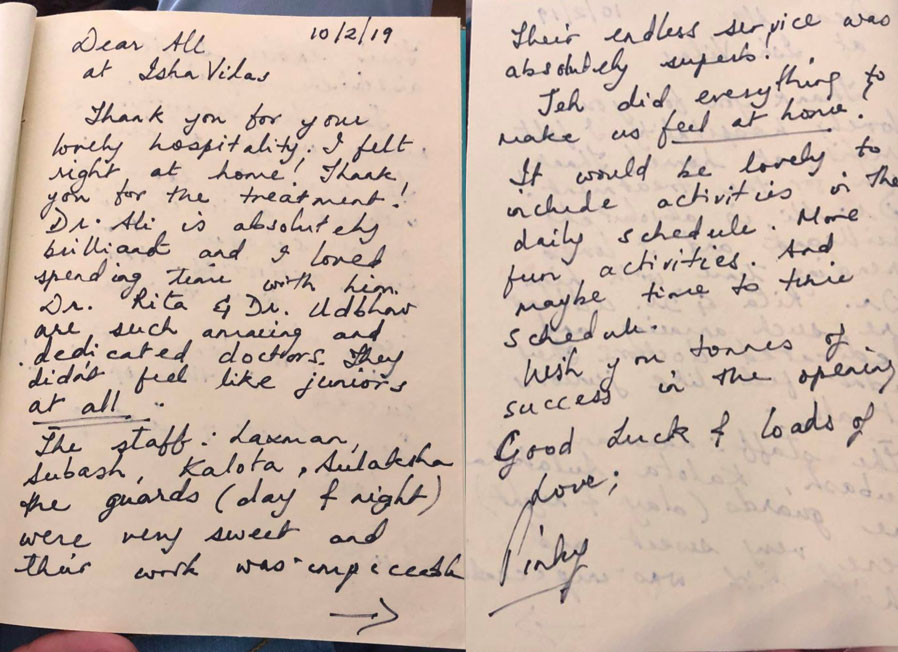 10/2/19
Dear All
at Isha Vilas
Thank you for your
lovely hospitality. I felt
right at home! Thank
you for the treatment!
Dr. Ali is absolutely
brilliant and I loved
spending time with him.
Dr. Rita & Dr. Udbhav
are such amazing and
dedicated doctors. They
didn't feel like juniors
at all.
The staff: Laxman,
Subash, Kalota, Sulaksha
the guards (day & night)
were very sweet and
their work was impeccable
→
Their endless service was
absolutely superb.
Teh did everything to
make us feel at home!
It would be lovely to
include activities in the
daily schedule. More
fun activities. And
maybe time to time
schedule.
Wish you tonnes of
success in the opening
Good Luck & loads of
Love;
Pinky